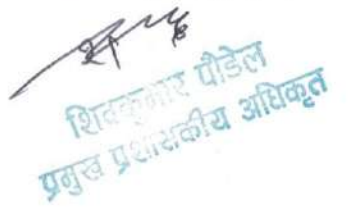 शिवकुमार पौडेल
प्रमुख प्रशासकीय अधिकृत